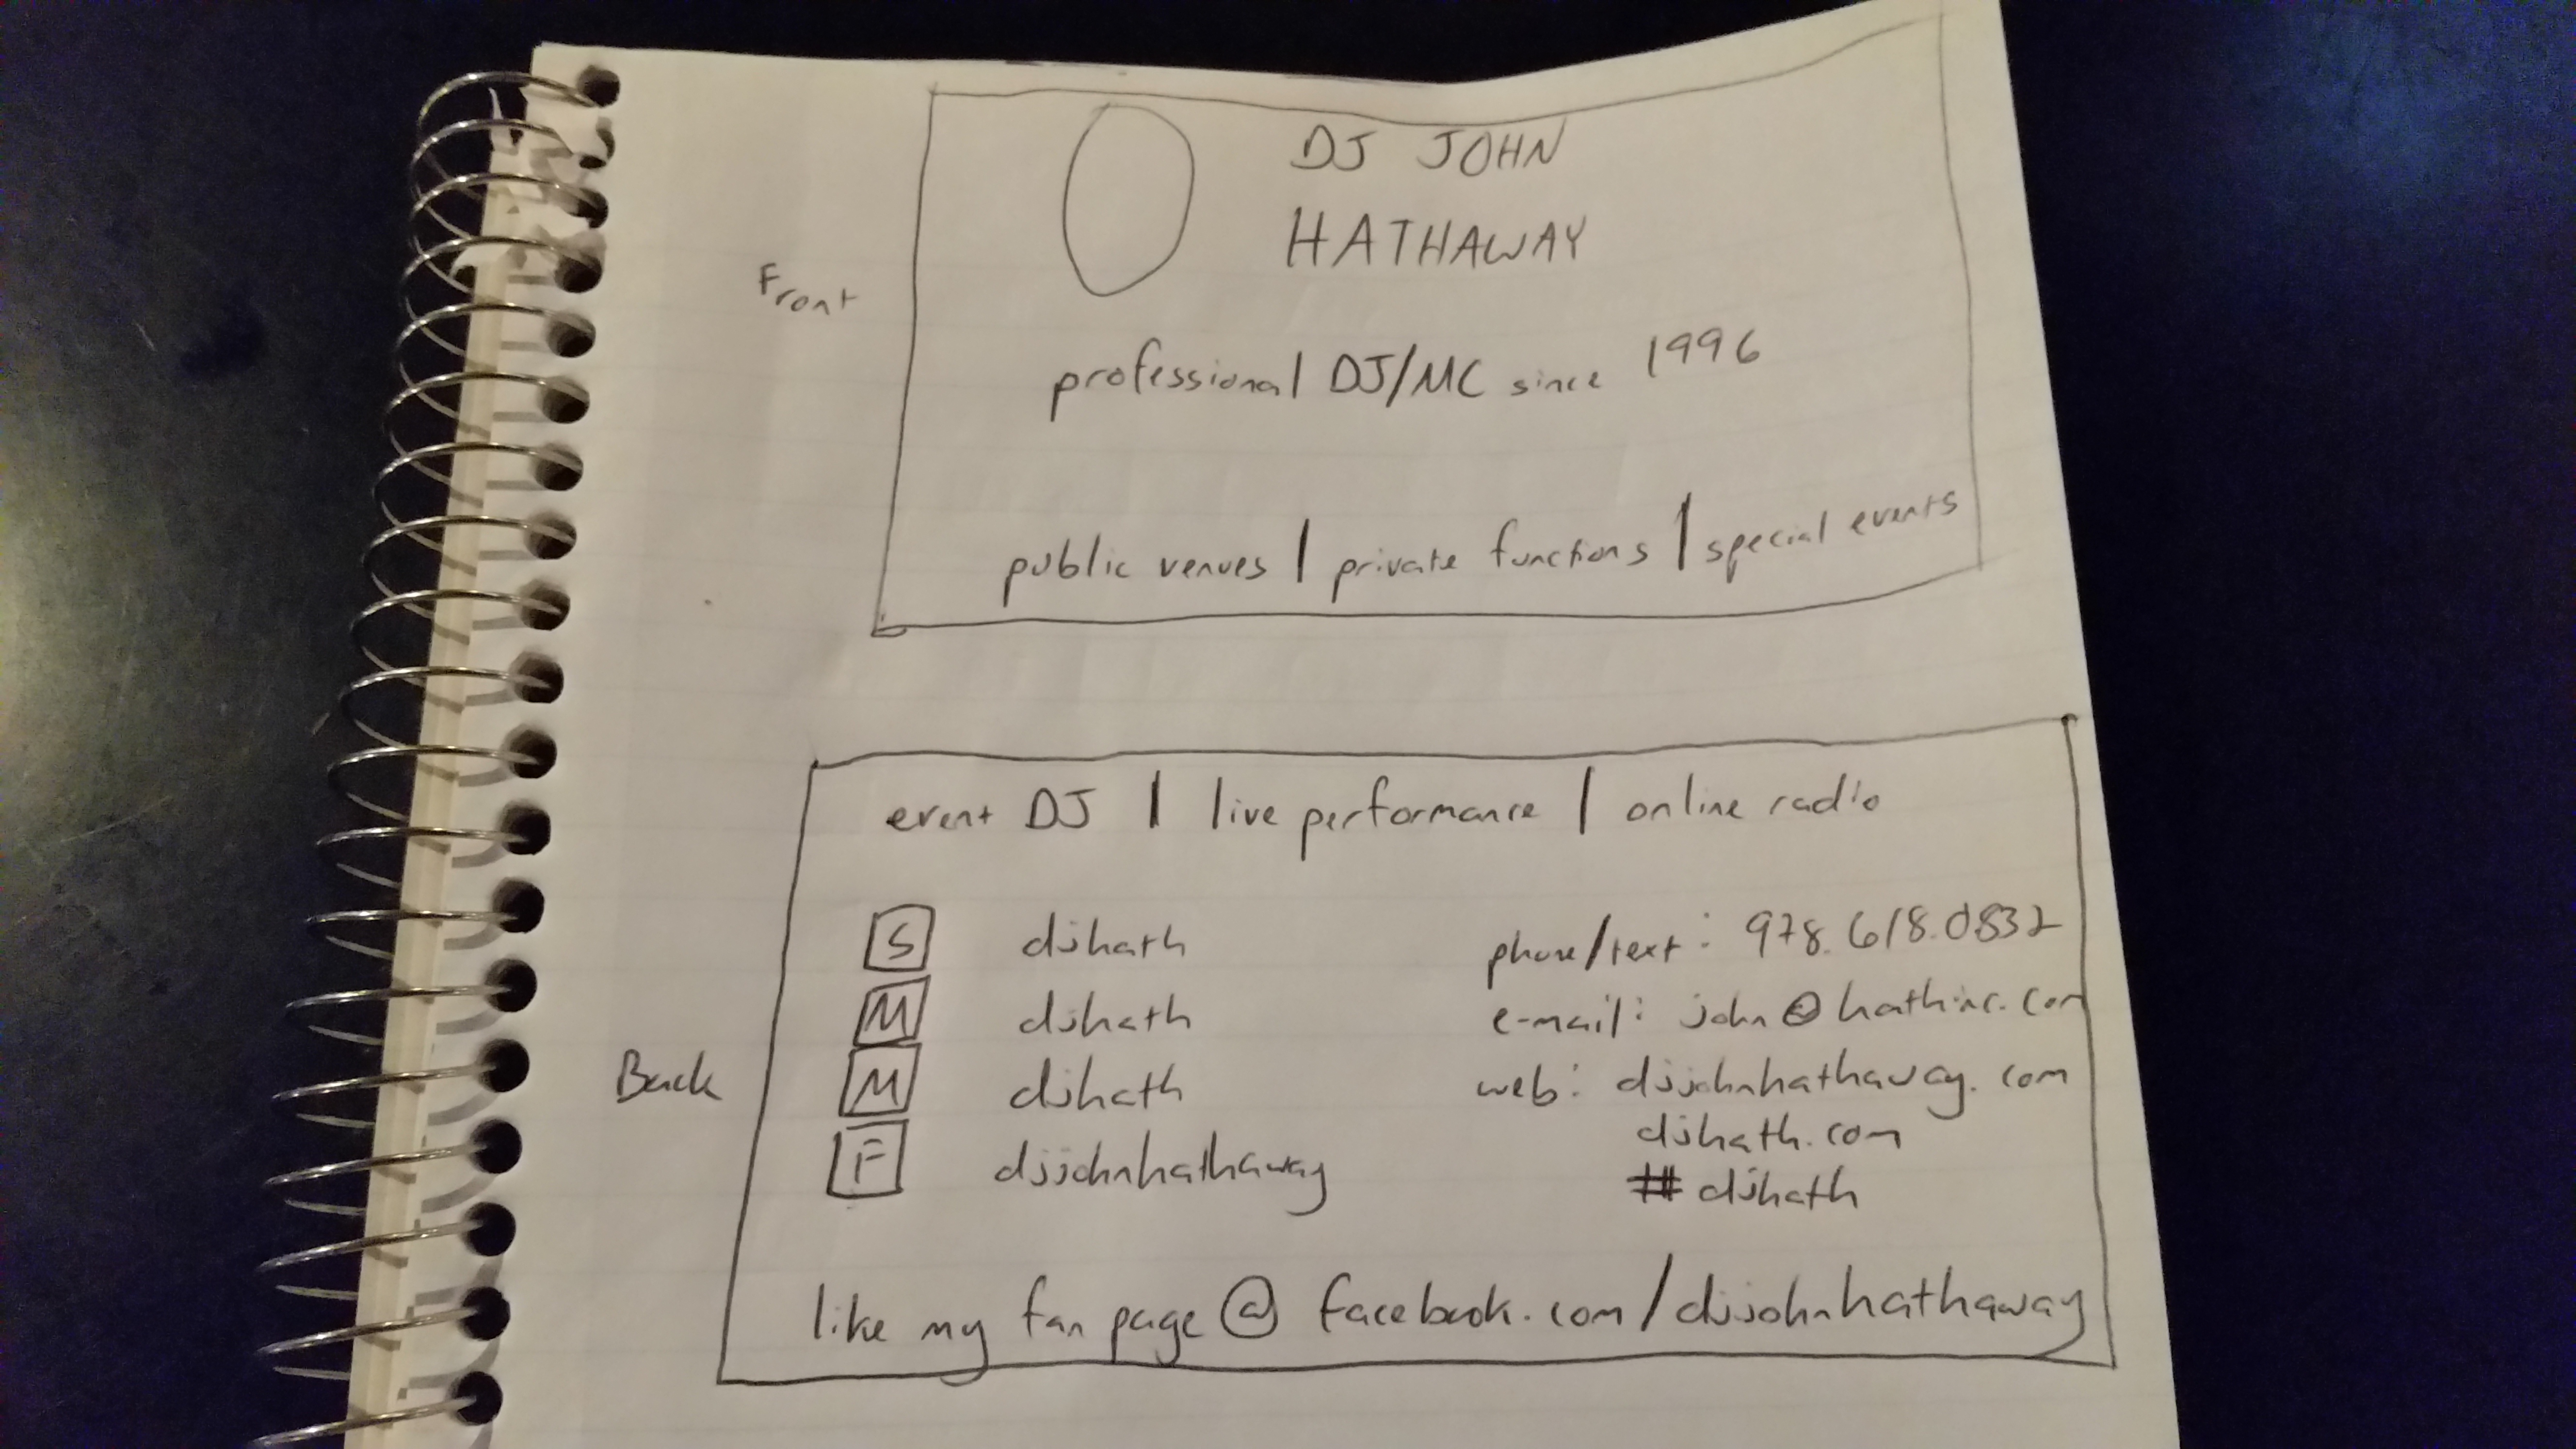 Front
DJ JOHN
HATHAWAY
professional DJ/MC since 1996
public venues | private functions | special events
Back
event DJ | live performance | online radio
S djhath
M djhath
M djhath
F djjohnhathaway
phone/text: 978.618.0832
e-mail: john@hathinc.com
web: djjohnhathaway.com
djhath.com
#djhath
like my fan page @ facebook.com/djjohnhathaway